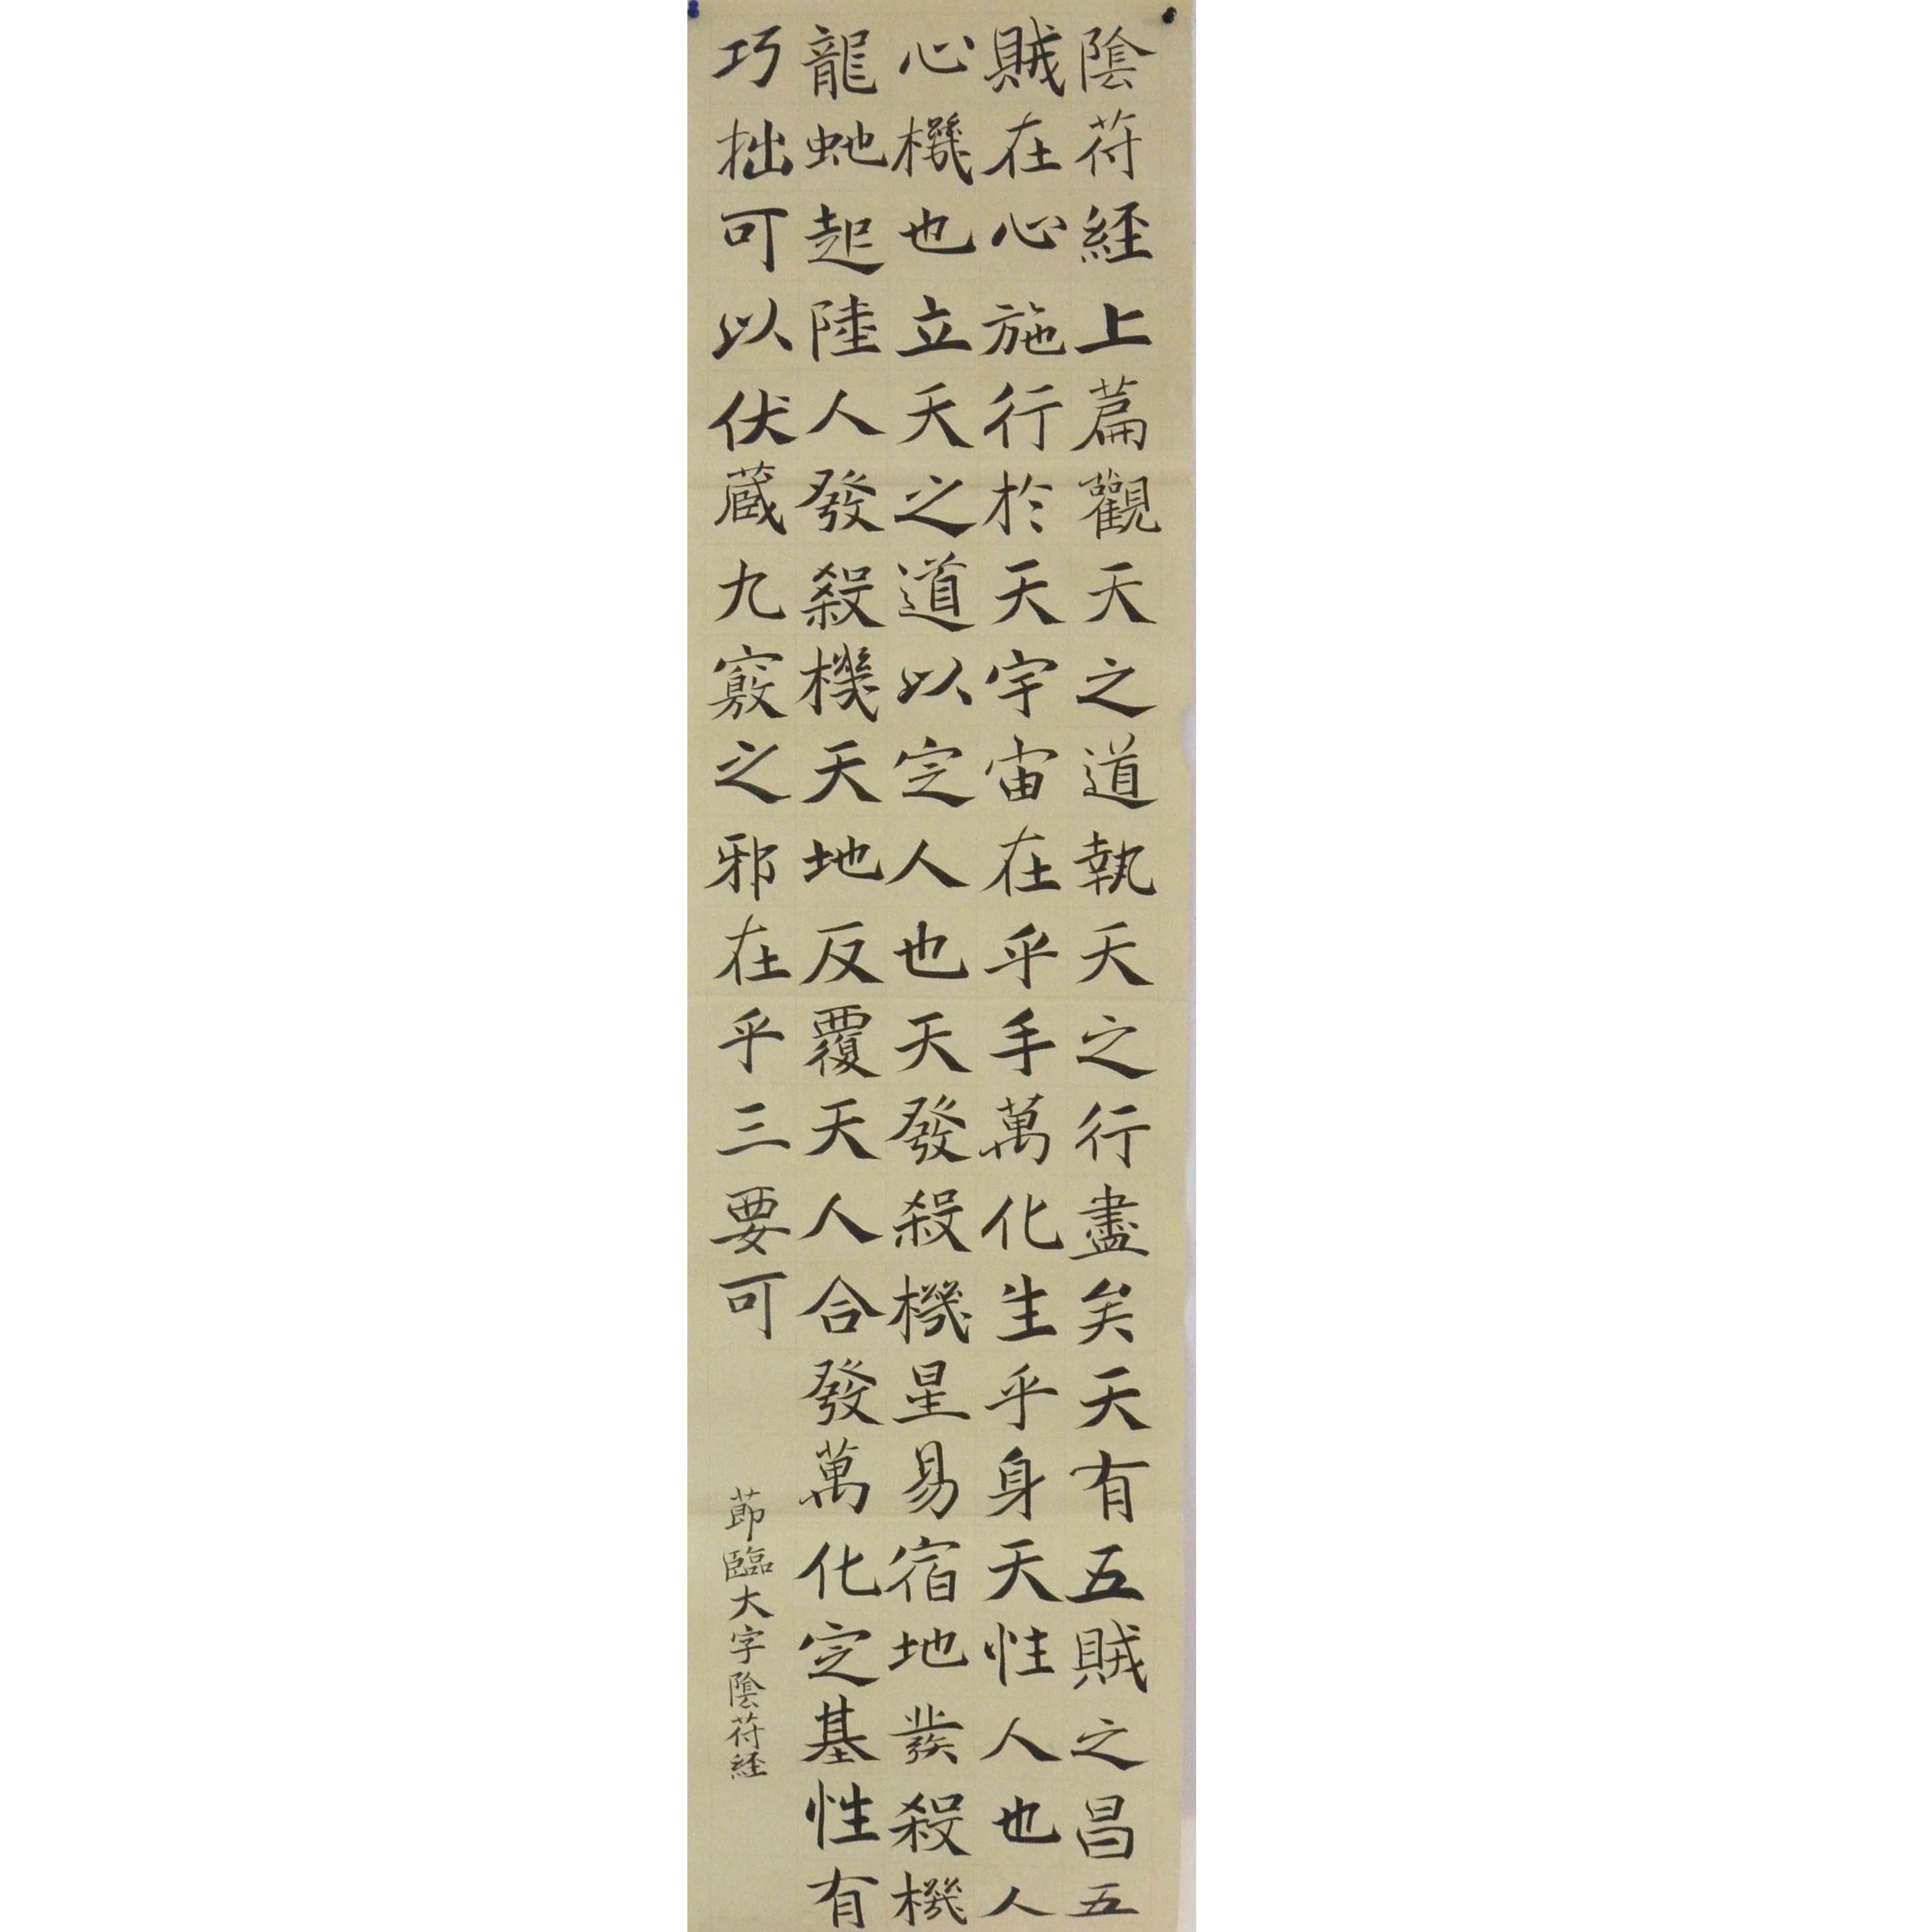 陰符經上篇觀天之道執天之行盡矣天有五賊之昌五
賊在心施行於天宇宙在乎手萬化生乎身天性人也人
心機也立天之道以定人也天發殺機星易宿地發殺機
龍虵起陸人發殺機天地反覆天人合發萬化定基性有
巧拙可以伏藏九竅之邪在乎三要可
節臨大字陰符經